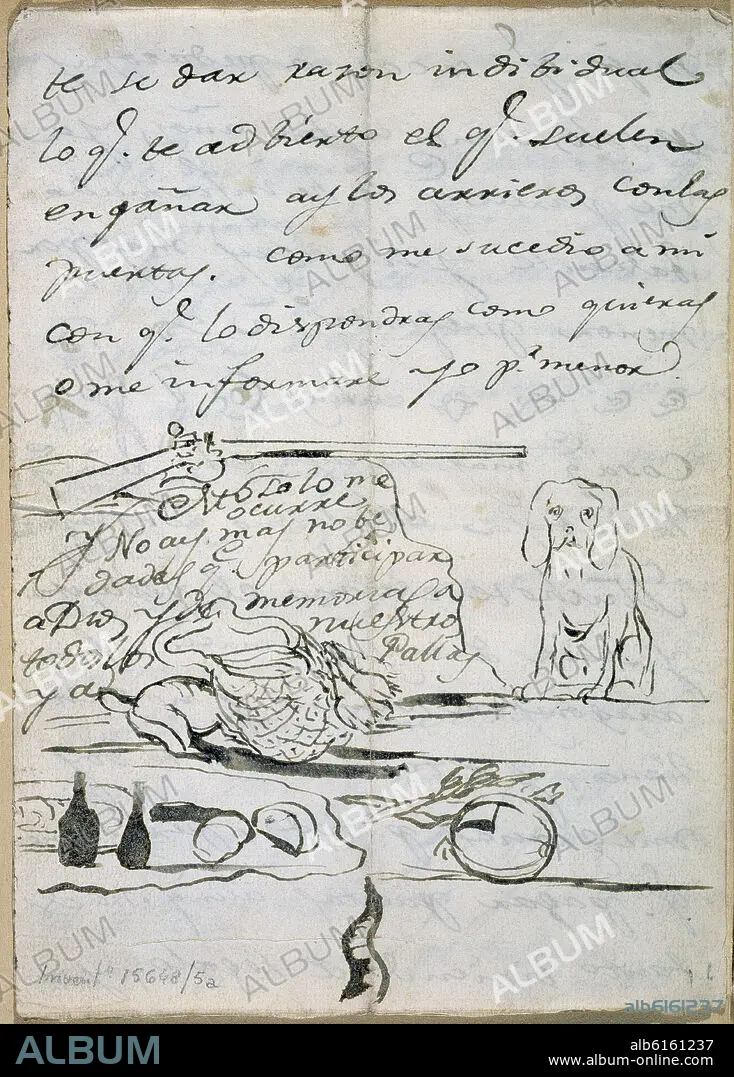 te se dar razon indibidual
lo q.ᵉ te adbierto es q.ᵉ suelen
engañar ay los arrieros con las
puertas. como me sucedio a mi
con q.ᵉ lo dispondras como quieras
o me informare yo p.ʳ menor
Esto solo me
ocurre
y No ay mas nobe
dades q.ᵉ participar
a Dios y de memorias a
nuestro
todos los
Pallas
y a
Invent.º 15648/5a
ALBUM
alb6161237
ALBUM
alb6161237
www.album-online.com